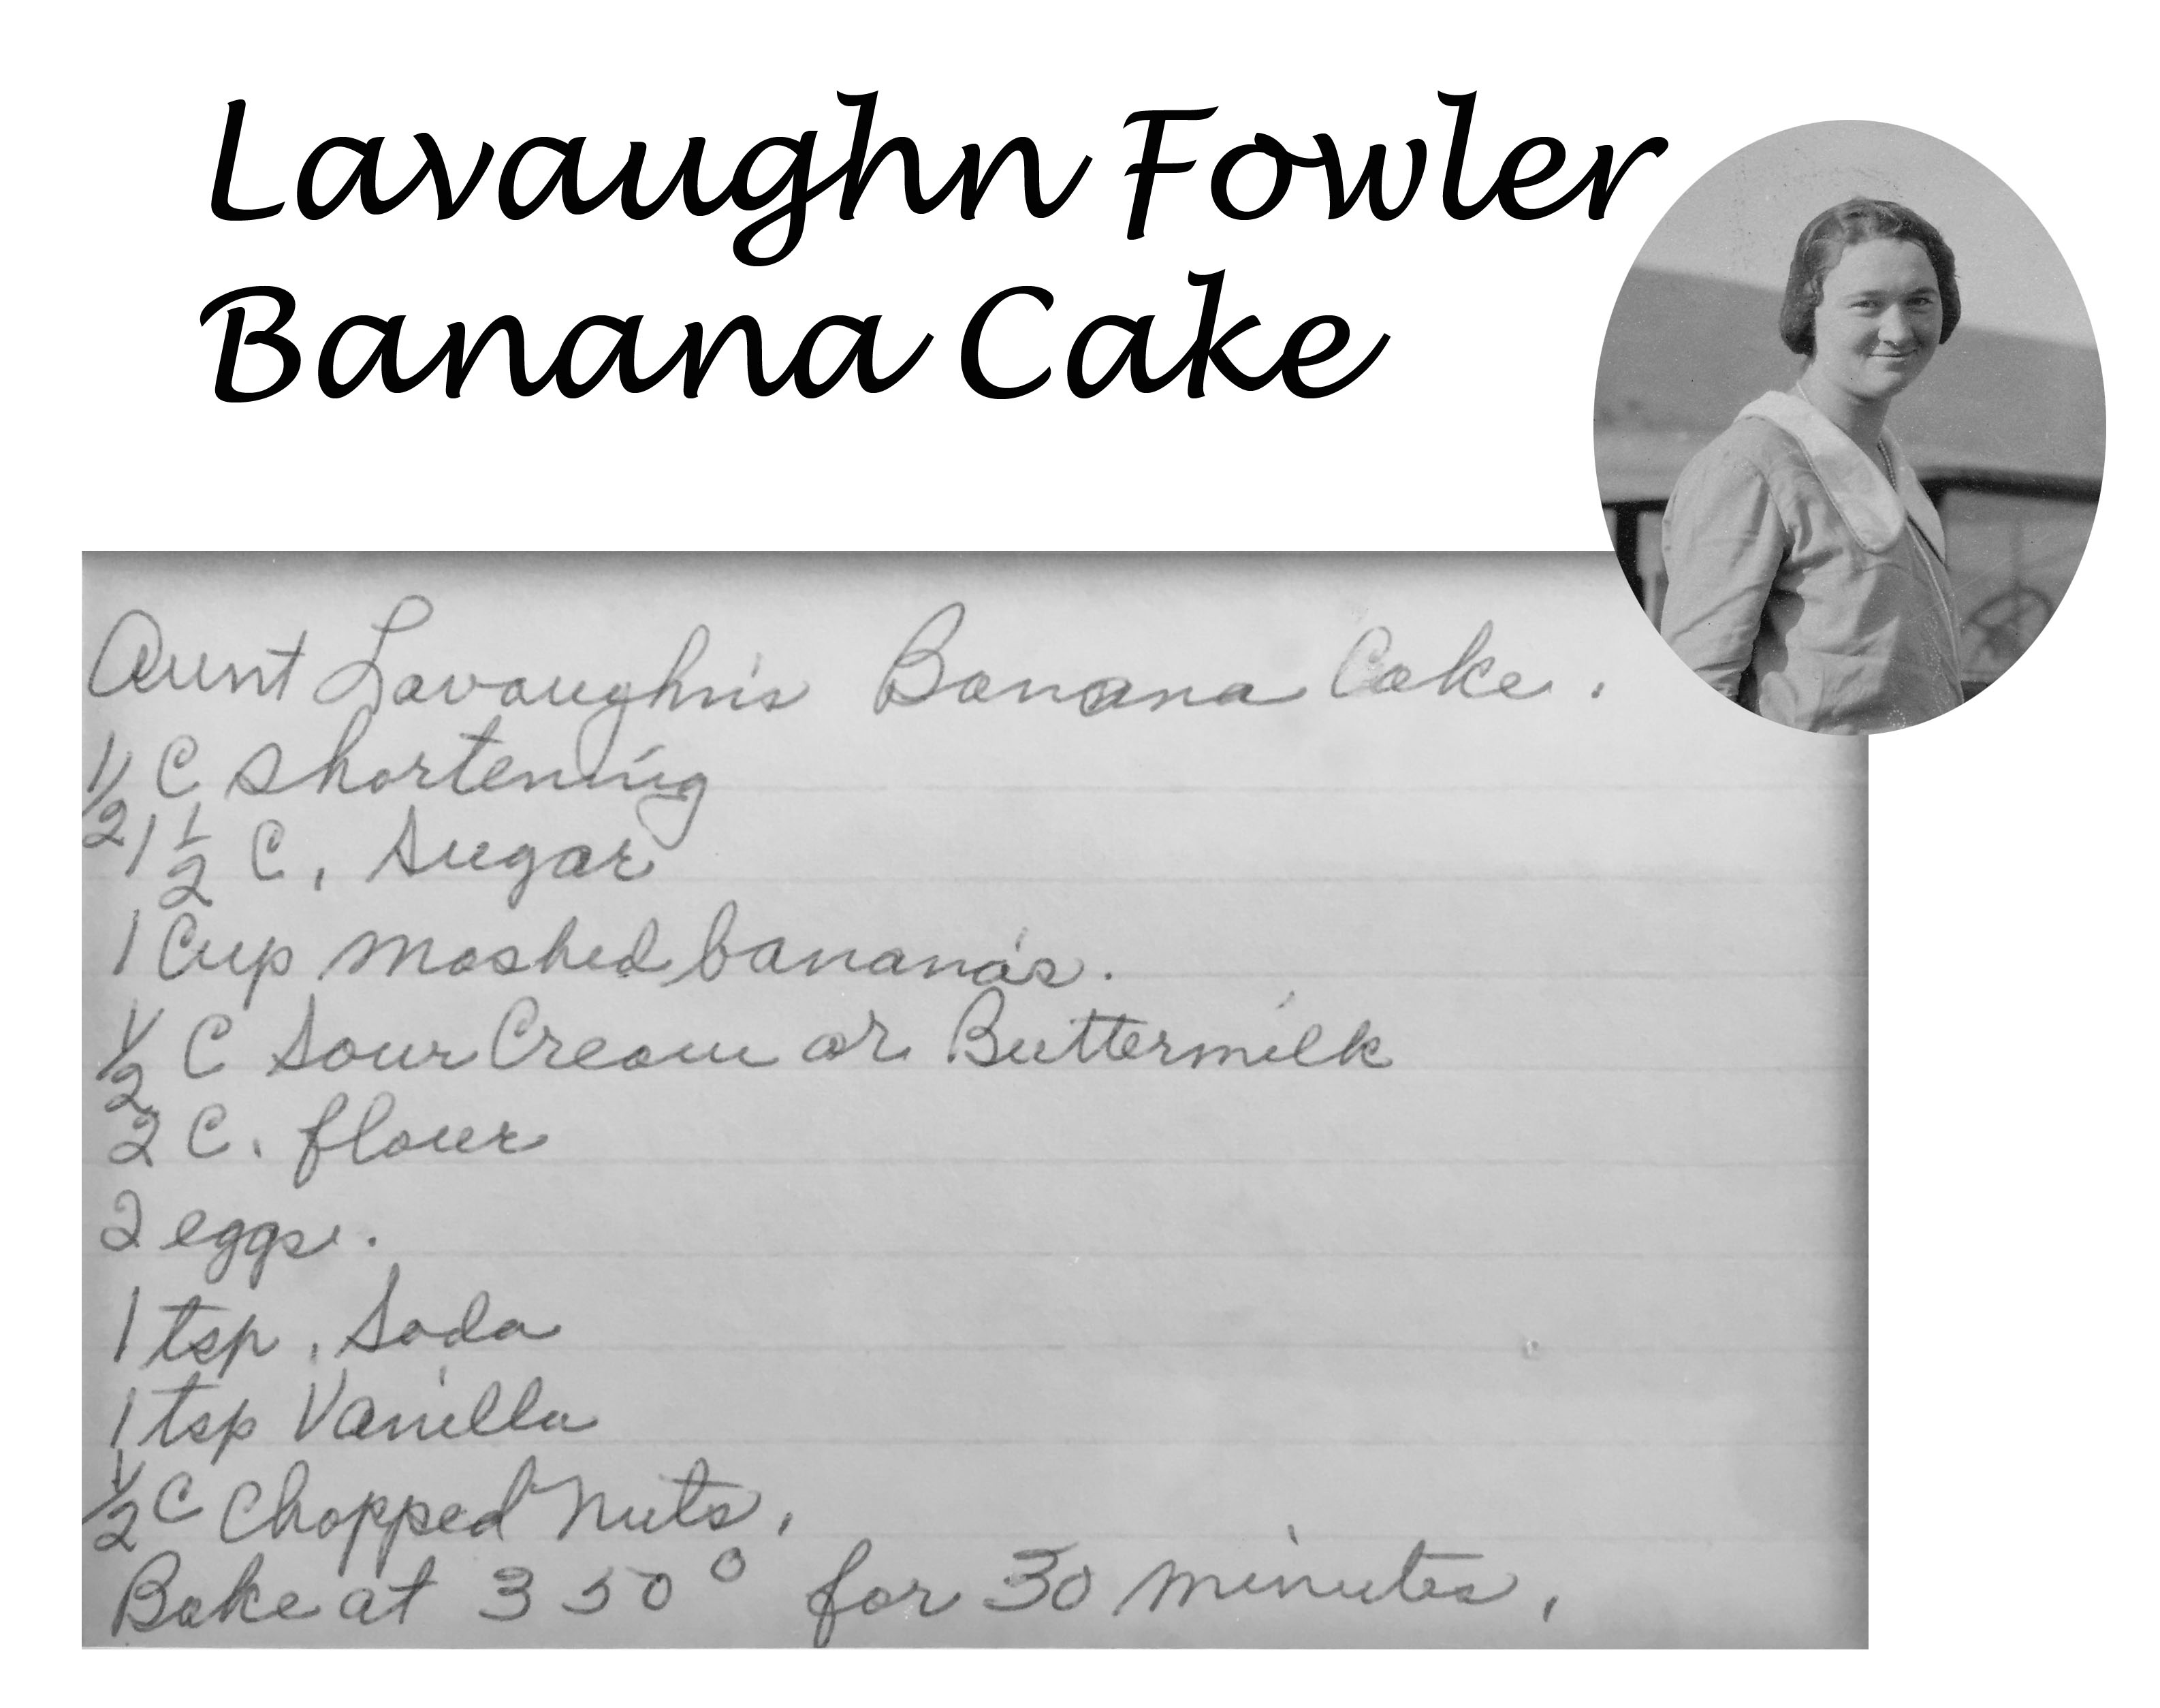 Lavaughn Fowler
Banana Cake
Aunt Lavaughn's Banana Cake.
1/2 C shortening
1 1/2 C. Sugar
1 Cup mashed banana's.
1/2 C Sour Cream or Buttermilk
2 C. flour
2 eggs.
1 tsp. Soda
1 tsp Vanilla
1/2 C Chopped Nuts.
Bake at 350° for 30 minutes.